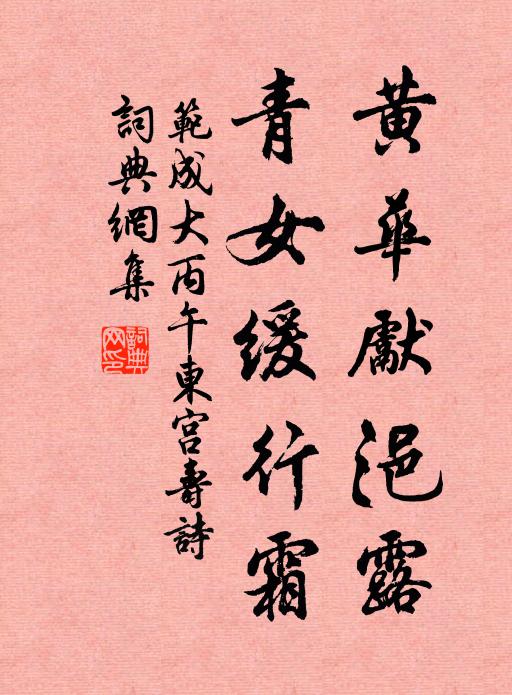 黄華獻浥露
青女緩行霜
範成大丙午東宮壽詩
詞典網集
詞典网印